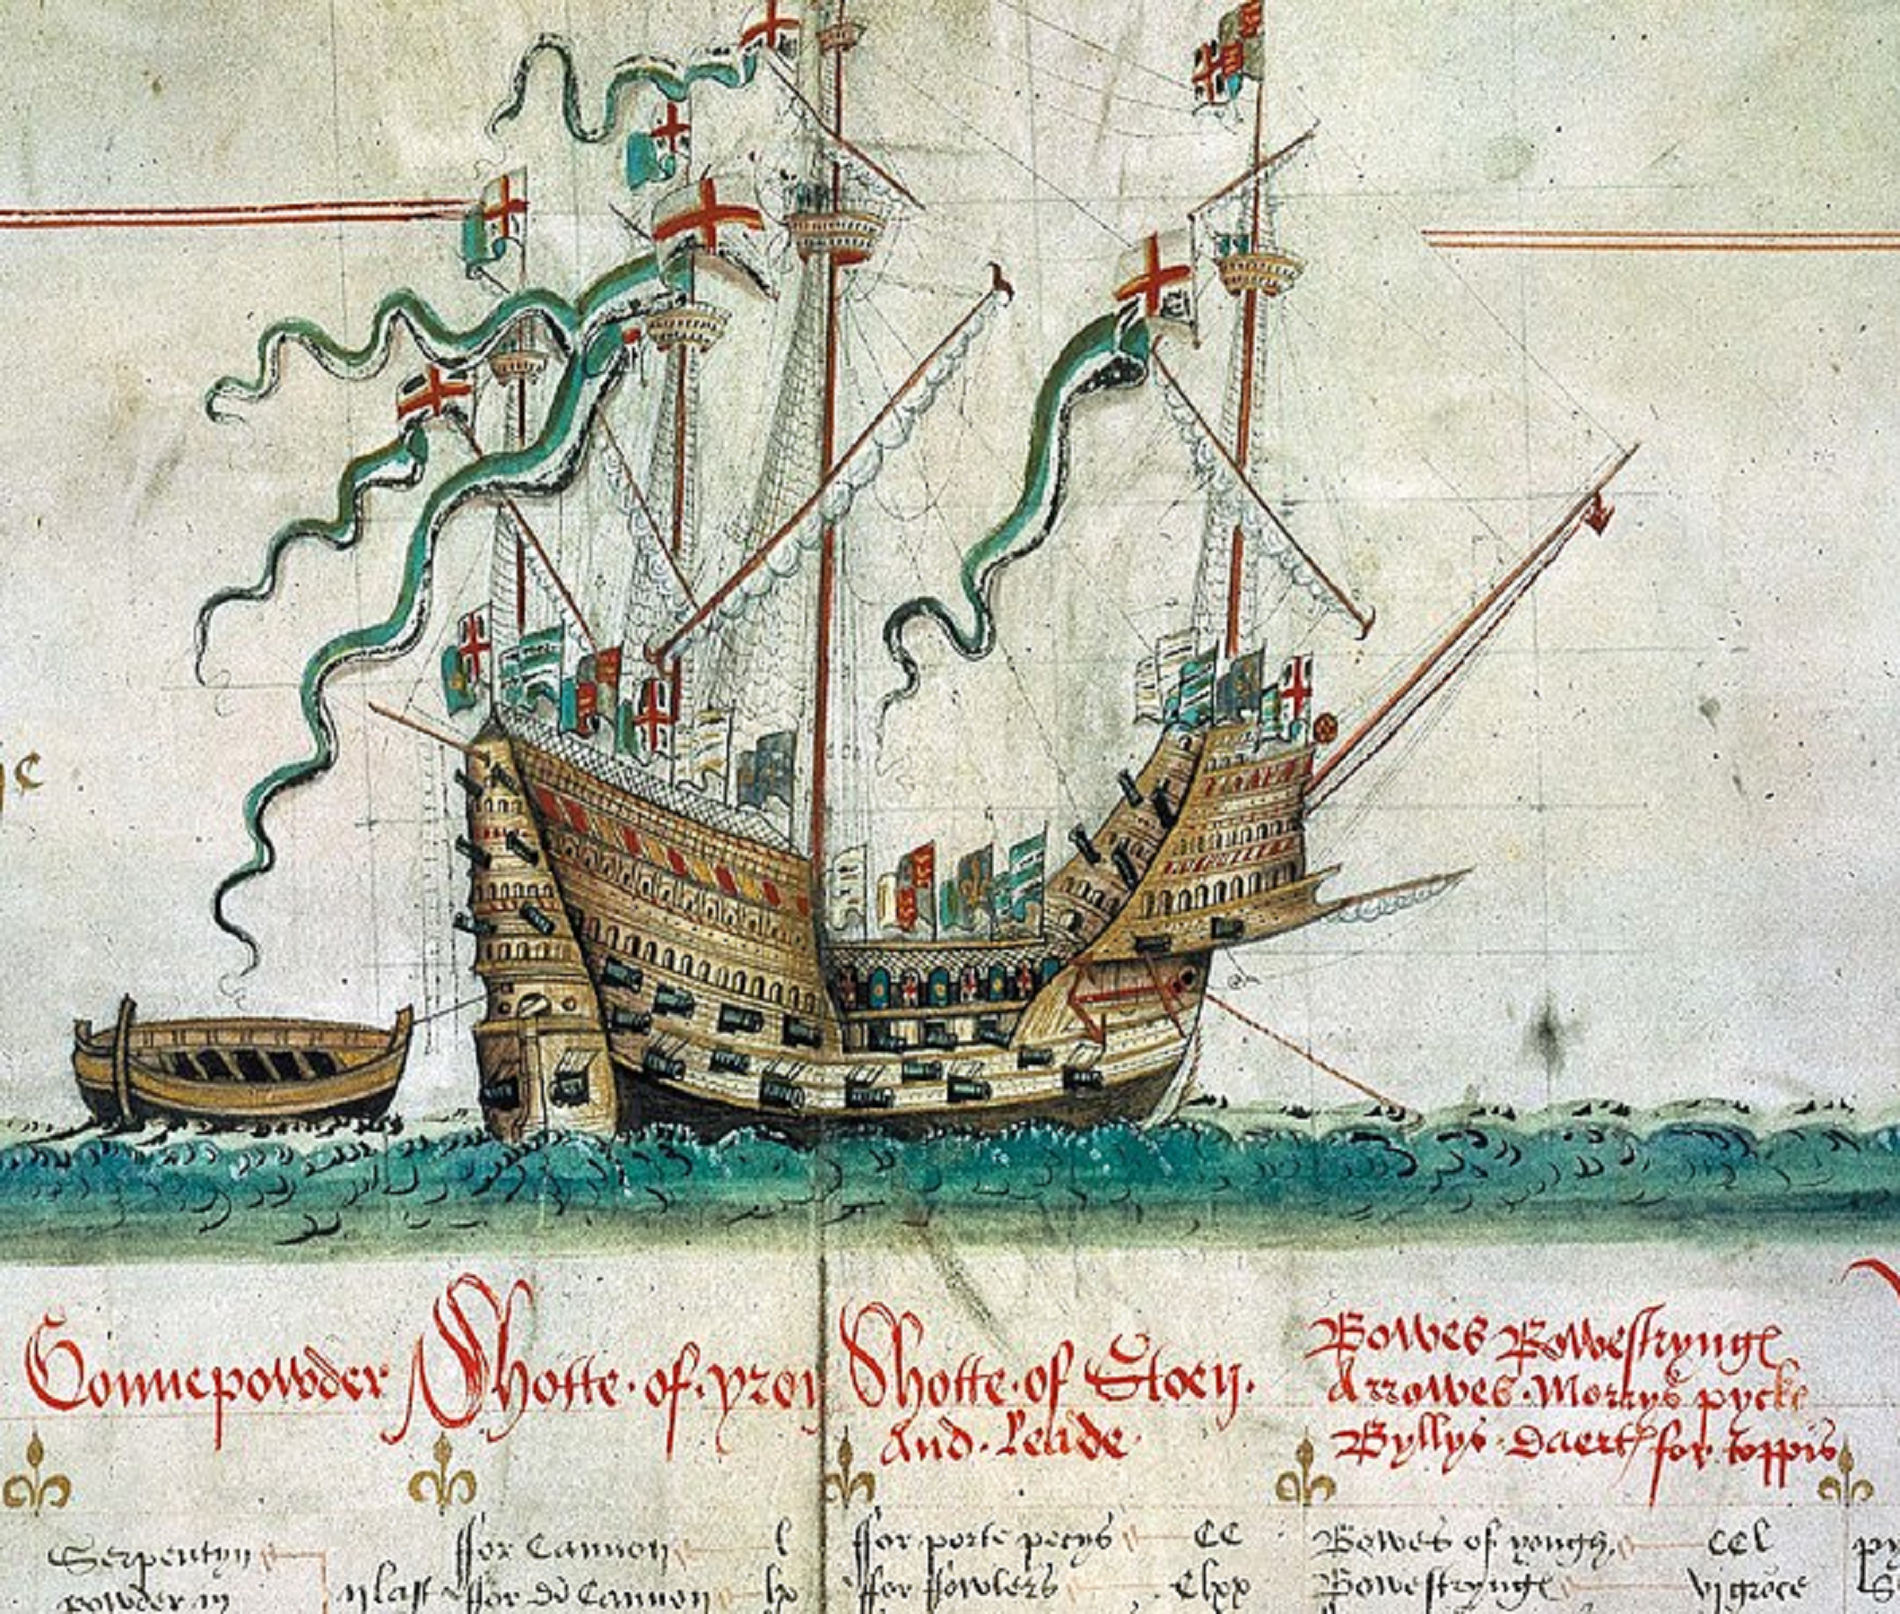 Gonnepowder Shotte · of · yron Shotte · of Stoen · And · Leade ·
Bowes Bowestrynges
Arrowes · Morrys pyckes
Byllys · Daertes for toppis
Serpentyn
powder in
ij last
ffor Cannon l
ffor di Cannon lx
ffor porte pecys CC
ffor ffowlers Clxx
Bowes of yough CCl
Bowestrynges vi groce